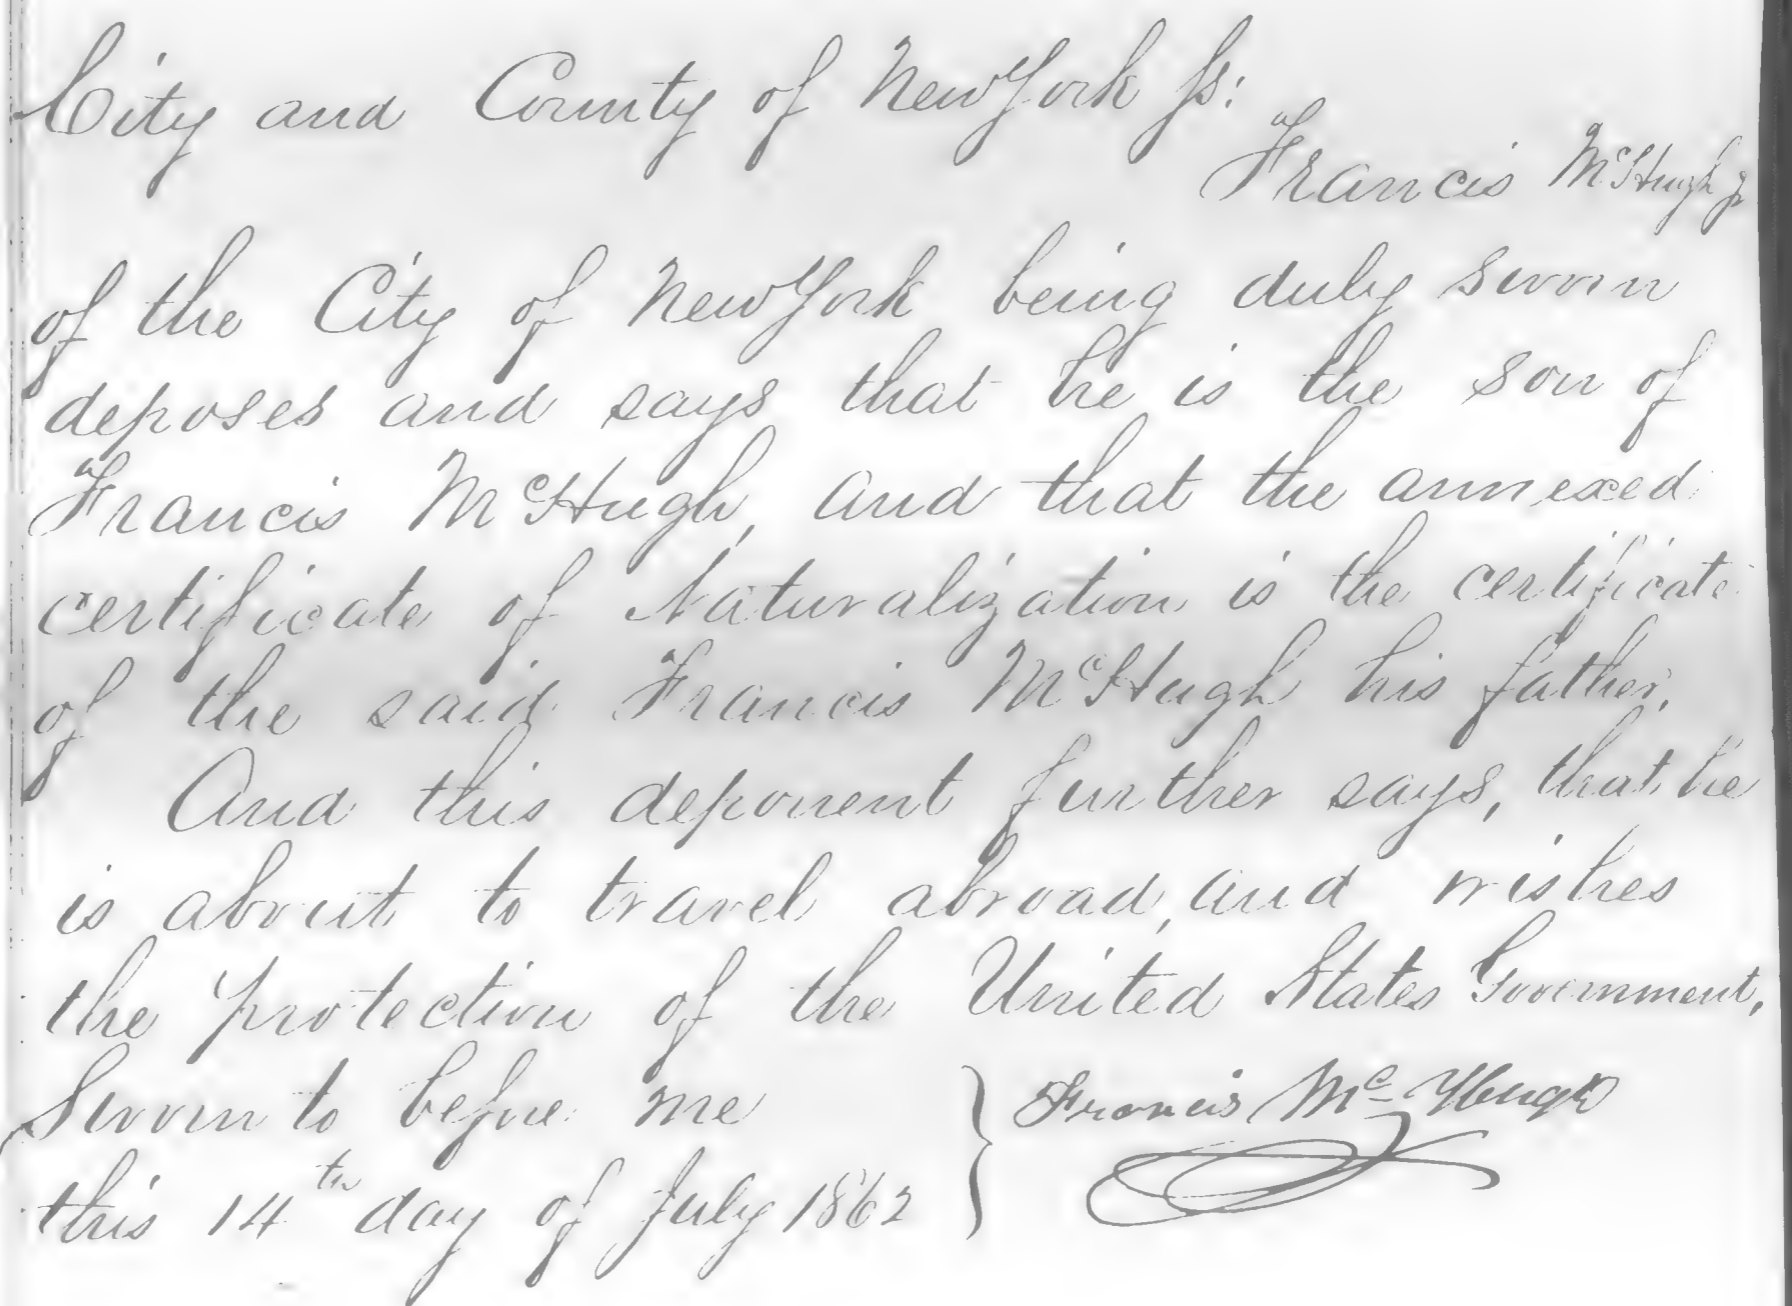 City and County of New York ss:
Francis McHugh jr
of the City of New York being duly sworn
deposes and says that he is the son of
Francis McHugh, and that the annexed
certificate of Naturalization is the certificate
of the said Francis McHugh his father.
And this deponent further says, that he
is about to travel abroad, and wishes
the protection of the United States Government.
Sworn to before me
this 14th day of July 1862
Francis Mc Hugh